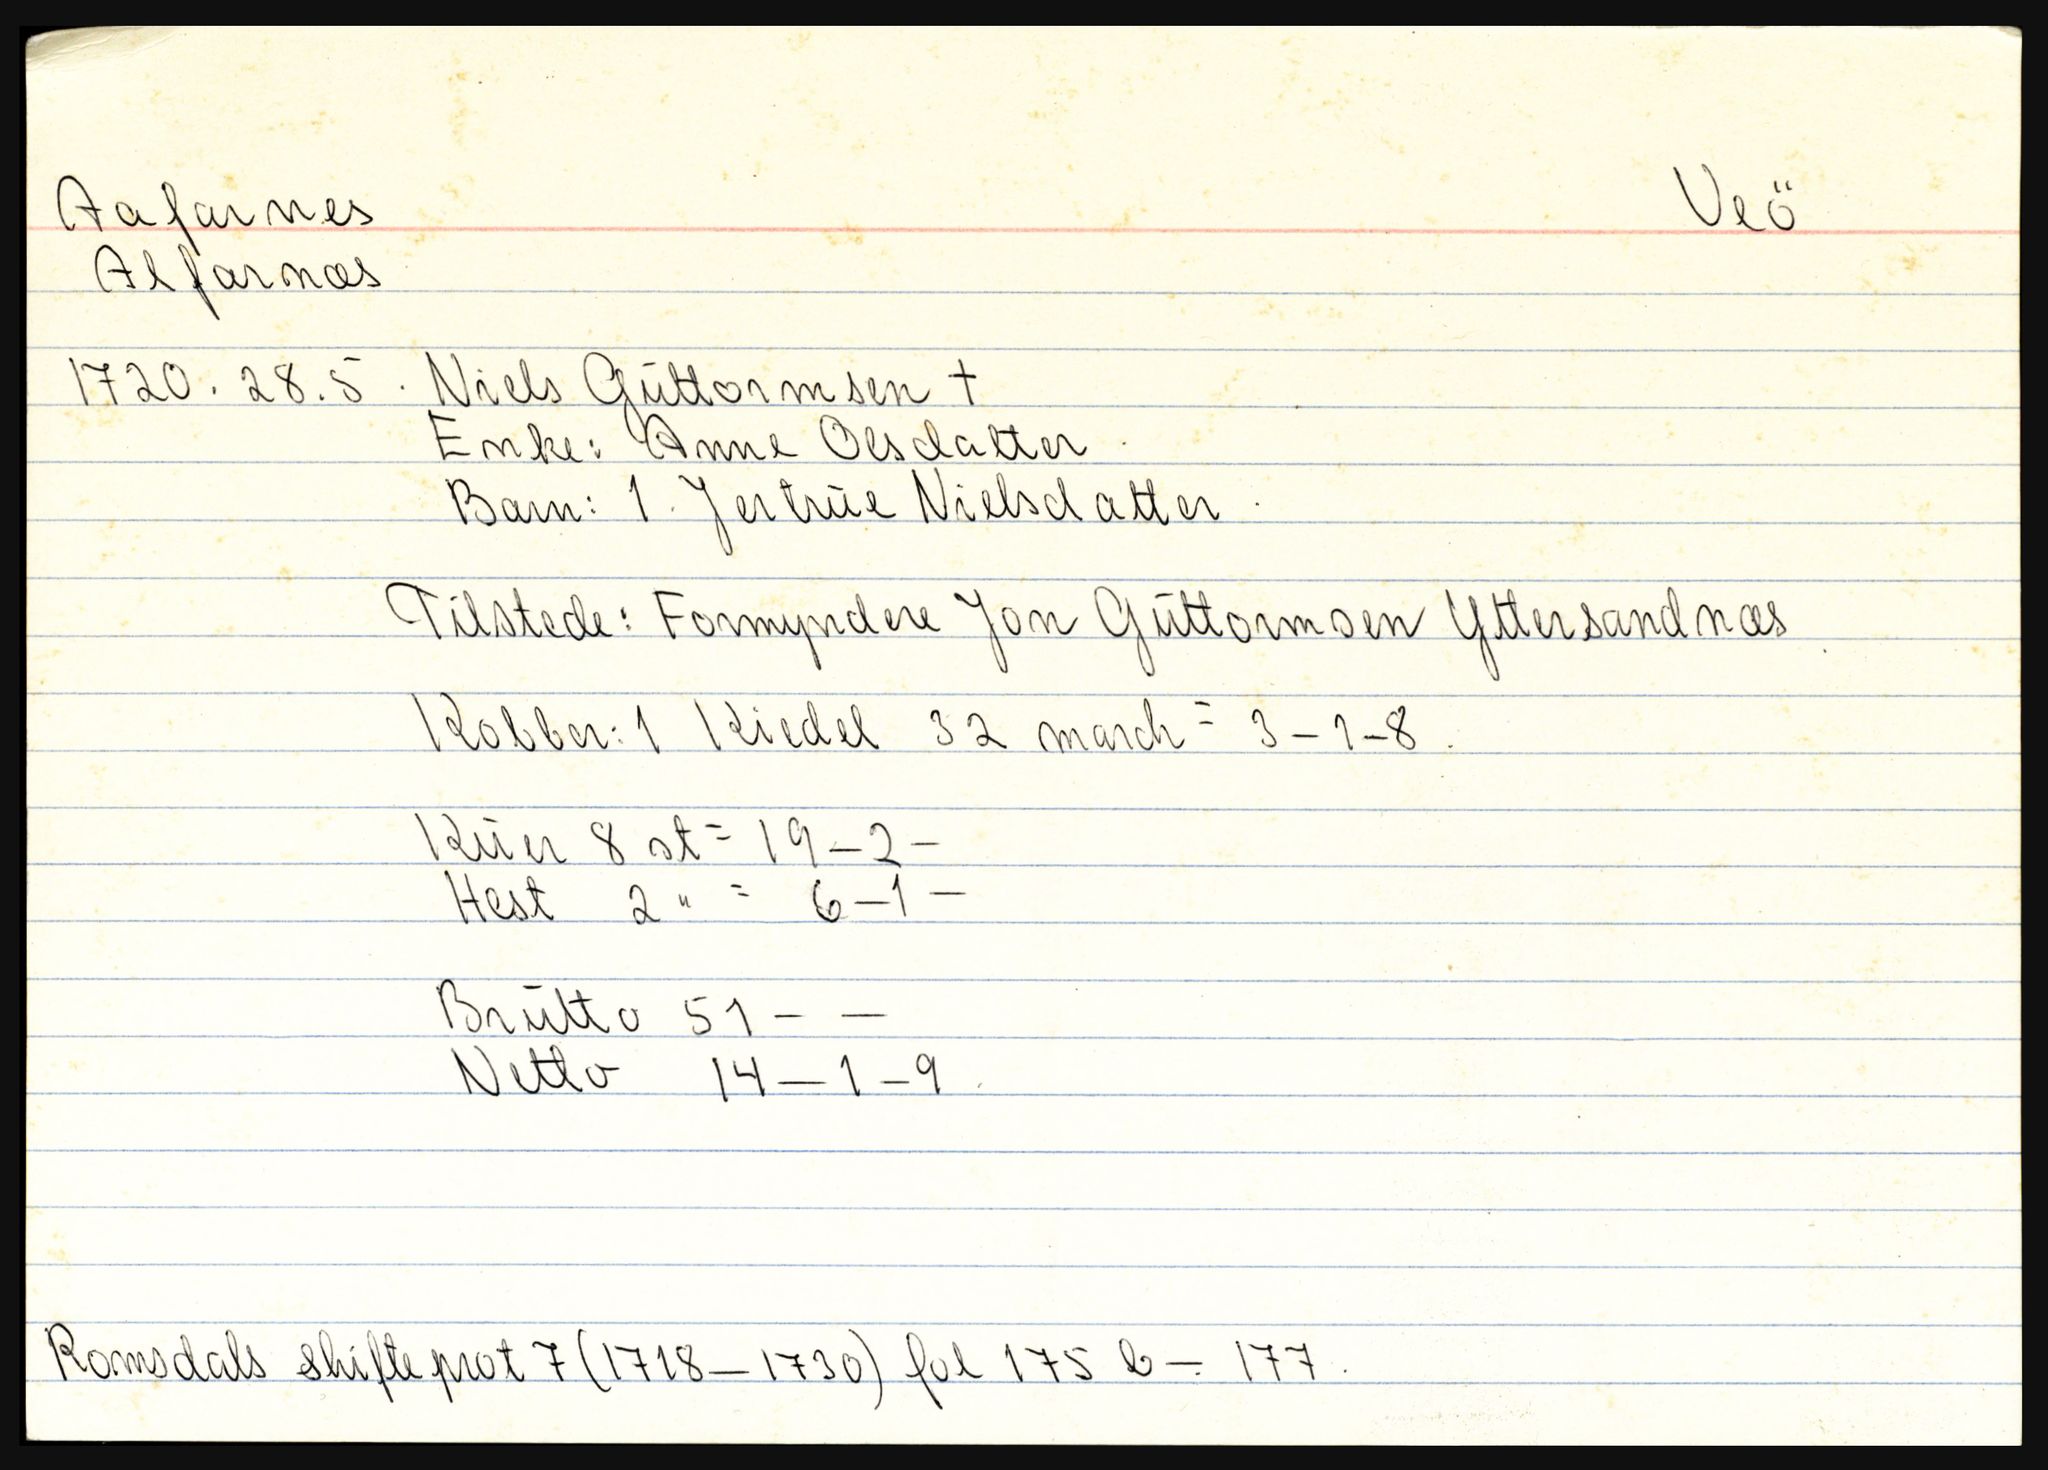 Aafarnes Veö
Alfarnæs
1720. 28.5. Niels Gŭttormsen †
Enke: Anne Olsdatter
Barn: 1. Jertrŭe Nielsdatter
Tilstede: Formyndere Jon Gŭttormsen Yttersandnæs
Kobber: 1 Kiedel 32 march = 3-1-8.
Kŭer 8 st = 19-2-
Hest 2 " = 6-1-
Brŭtto 51 - -
Netto 14-1-9.
Romsdals skifteprot 7 (1718-1730) fol 175 b - 177.